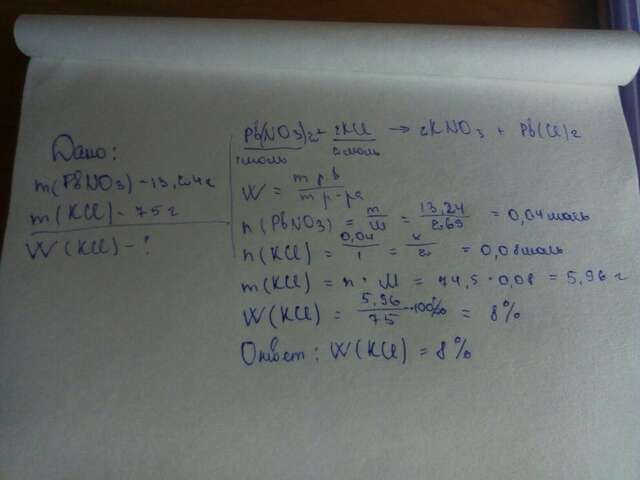 Дано:
m(PbNO3) - 13,24г
m(KCl) - 75г
W(KCl) - ?
Pb(NO3)2 + 2KCl → 2KNO3 + Pb(Cl)2
1моль 2моль
W = m р.в / m р-ра
n(PbNO3) = m/M = 13,24/269 = 0,04моль
n(KCl) = 0,04/1 = x/2 = 0,08моль
m(KCl) = n · M = 74,5 · 0,08 = 5,96 г
W(KCl) = 5,96/75 · 100% = 8%
Ответ: W(KCl) = 8%